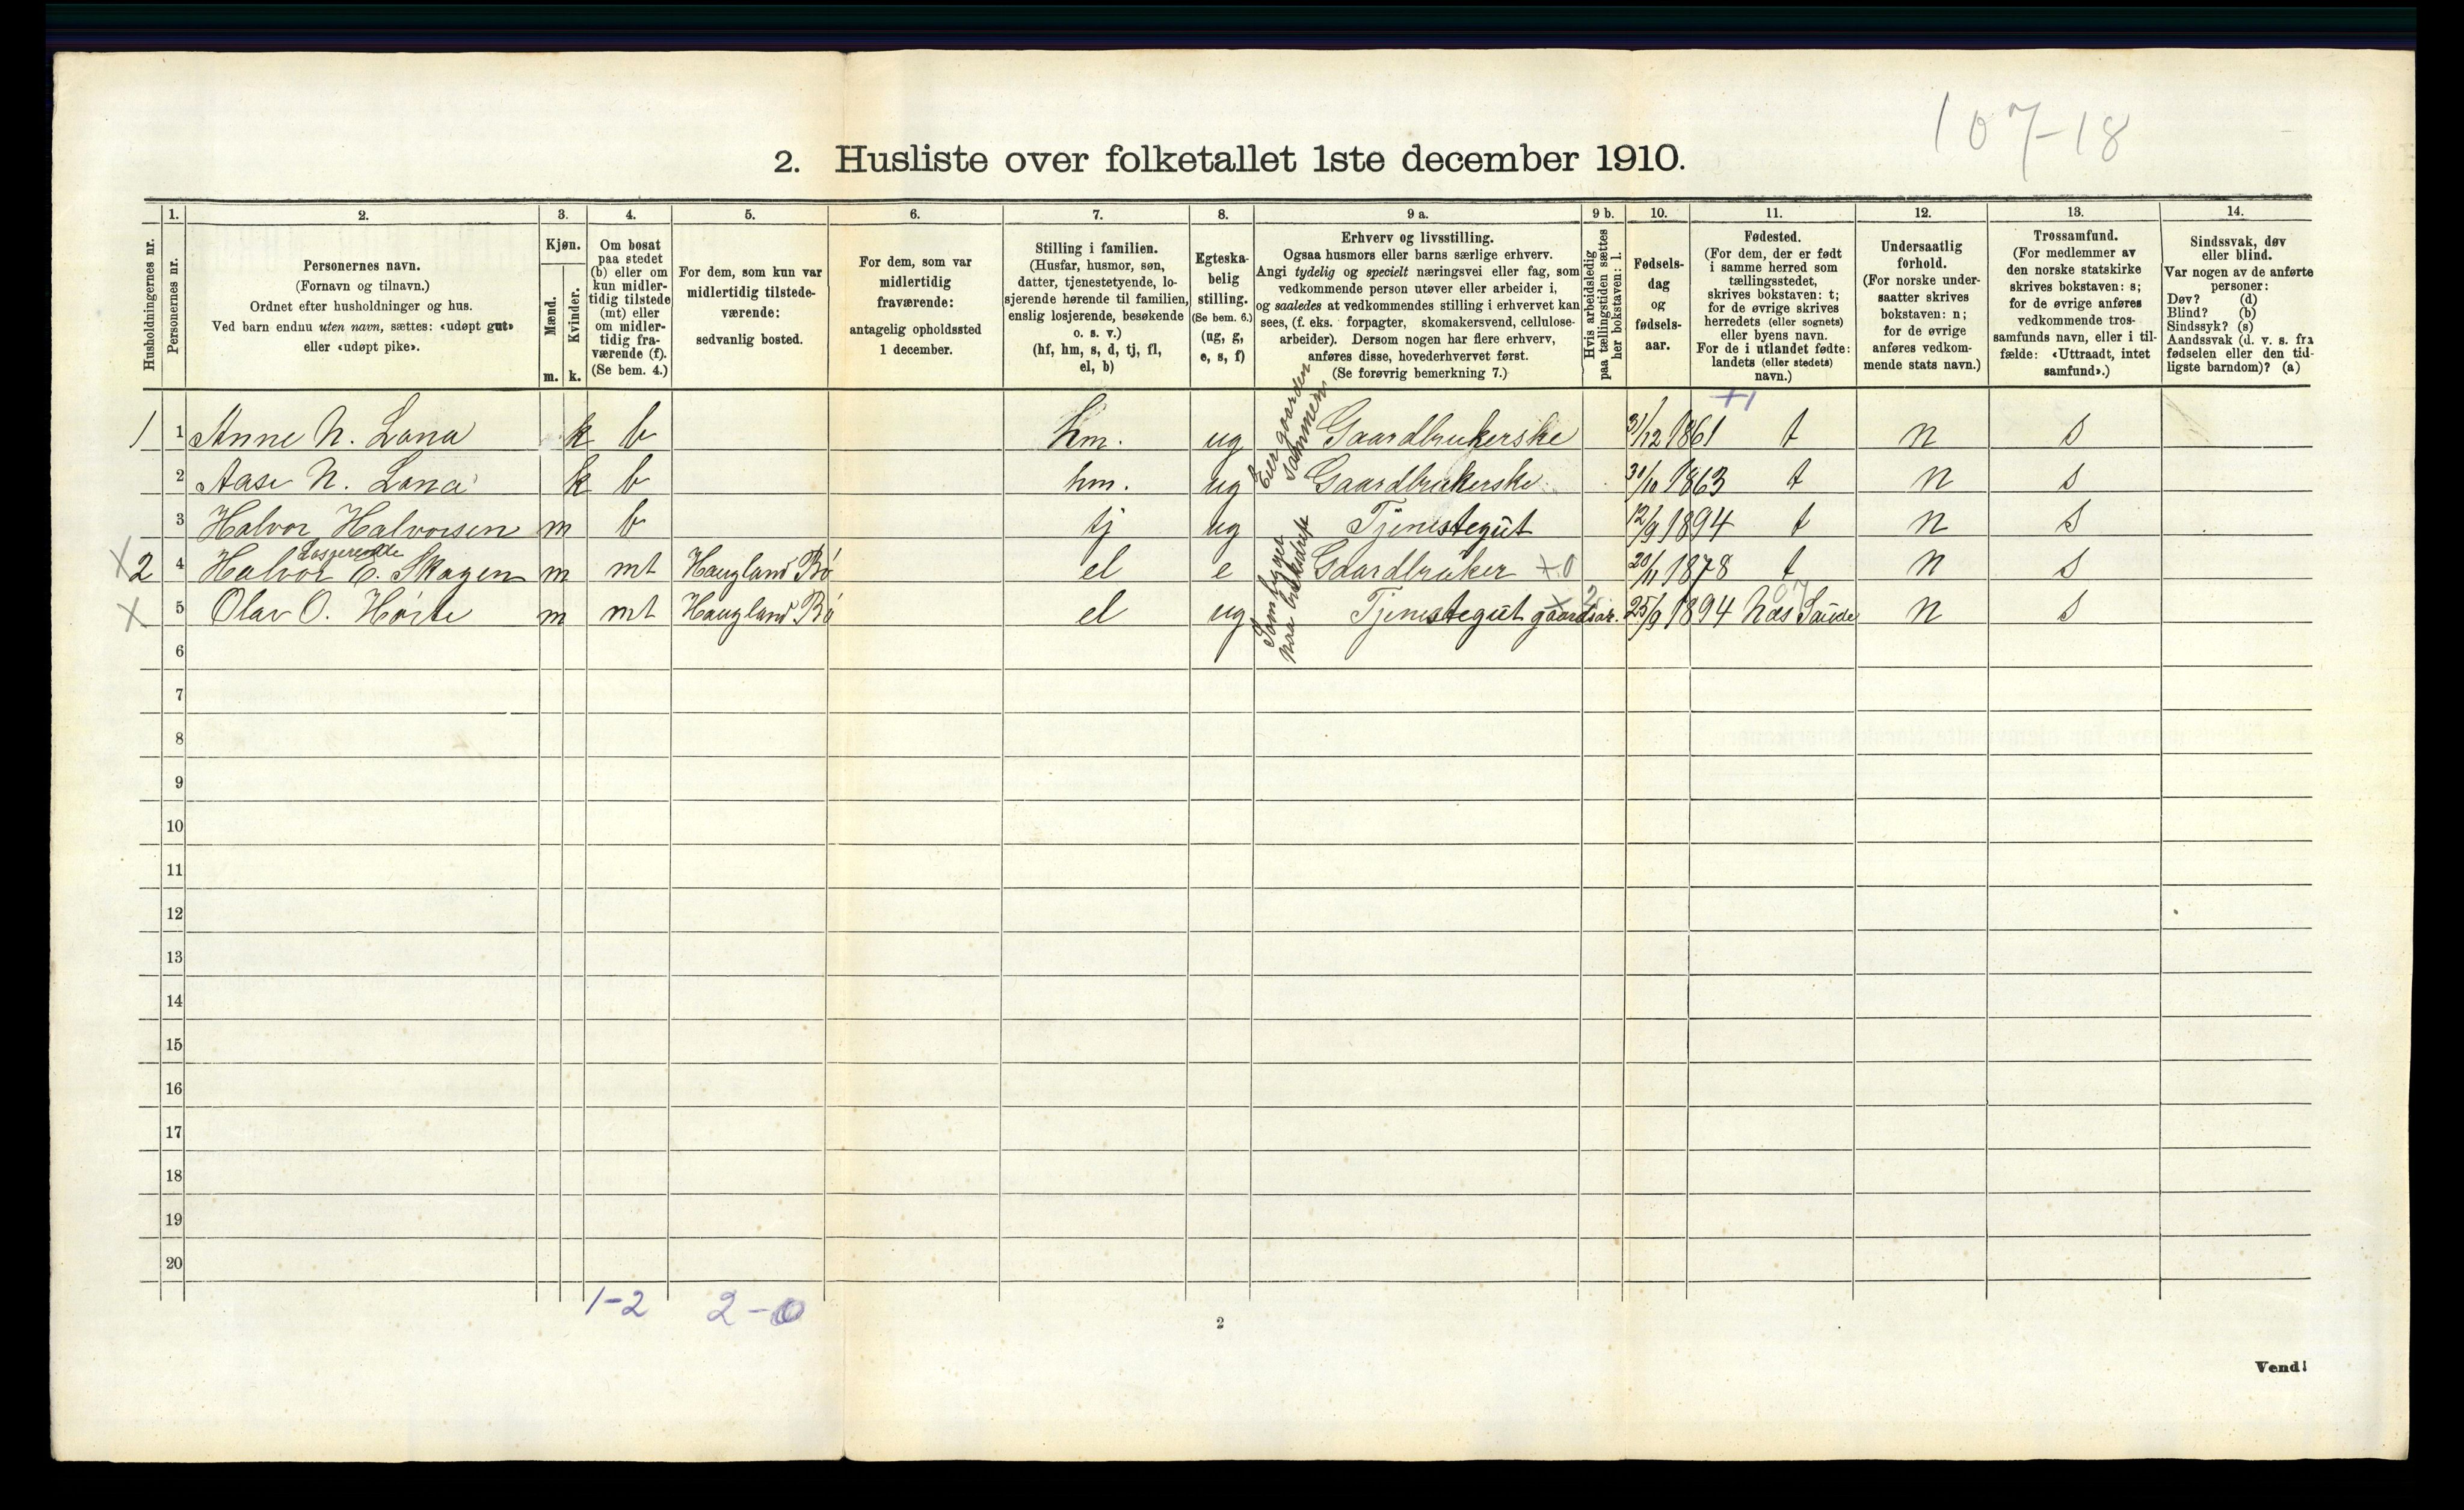 107-18
2. Husliste over folketallet 1ste december 1910.
1. 2. 3. 4. 5. 6. 7. 8. 9 a. 9 b. 10. 11. 12. 13. 14.
Husholdningernes nr.
Personernes nr.
Personernes navn.
(Fornavn og tilnavn.)
Ordnet efter husholdninger og hus.
Ved barn endnu uten navn, sættes: «udøpt gut»
eller «udøpt pike».
Kjøn.
Mænd.
Kvinder.
m. k.
Om bosat
paa stedet
(b) eller om
kun midler-
tidig tilstede
(mt) eller
om midler-
tidig fra-
værende (f).
(Se bem. 4.)
For dem, som kun var
midlertidig tilstede-
værende:
sedvanlig bosted.
For dem, som var
midlertidig
fraværende:
antagelig opholdssted
1 december.
Stilling i familien.
(Husfar, husmor, søn,
datter, tjenestetyende, lo-
sjerende hørende til familien,
enslig losjerende, besøkende
o. s. v.)
(hf, hm, s, d, tj, fl,
el, b)
Egteska-
belig
stilling.
(Se bem. 6.)
(ug, g,
e, s, f)
Erhverv og livsstilling.
Ogsaa husmors eller barns særlige erhverv.
Angi tydelig og specielt næringsvei eller fag, som
vedkommende person utøver eller arbeider i,
og saaledes at vedkommendes stilling i erhvervet kan
sees, (f. eks. forpagter, skomakersvend, cellulose-
arbeider). Dersom nogen har flere erhverv,
anføres disse, hovederhvervet først.
(Se forøvrig bemerkning 7.)
Hvis arbeidsledig
paa tællingstiden sættes
her bokstaven: l.
Fødsels-
dag
og
fødsels-
aar.
Fødested.
(For dem, der er født
i samme herred som
tællingsstedet,
skrives bokstaven: t;
for de øvrige skrives
herredets (eller sognets)
eller byens navn.
For de i utlandet fødte:
landets (eller stedets)
navn.)
Undersaatlig
forhold.
(For norske under-
saatter skrives
bokstaven: n;
for de øvrige
anføres vedkom-
mende stats navn.)
Trossamfund.
(For medlemmer av
den norske statskirke
skrives bokstaven: s;
for de øvrige anføres
vedkommende tros-
samfunds navn, eller i til-
fælde: «Uttraadt, intet
samfund».)
Sindssvak, døv
eller blind.
Var nogen av de anførte
personer:
Døv? (d)
Blind? (b)
Sindssyk? (s)
Aandssvak (d. v. s. fra
fødselen eller den tid-
ligste barndom)? (a)
+1
Eier gaarden
sammen
1 1 Anne N. Lona k b hm. ug Gaardbrukerske 31/12 1861 t n s
2 Aase N. Lona k b hm. ug Gaardbrukerske 30/10 1863 t n s
3 Halvor Halvorsen m b tj ug Tjenestegut 12/9 1894 t n s
Losjerende
X 2 4 Halvor O. Skogen m mt Haugland Bø el e Gaardbruker +0 20/11 1878 t n s
X 5 Olav O. Hørte m mt Haugland Bø el ug Tjenestegut gaardsar. 25/9 1894 Næs Saude n s
6
7
8
9
10
11
12
13
14
15
16
17
18
19
20
1-2 2-0
2
Vend!